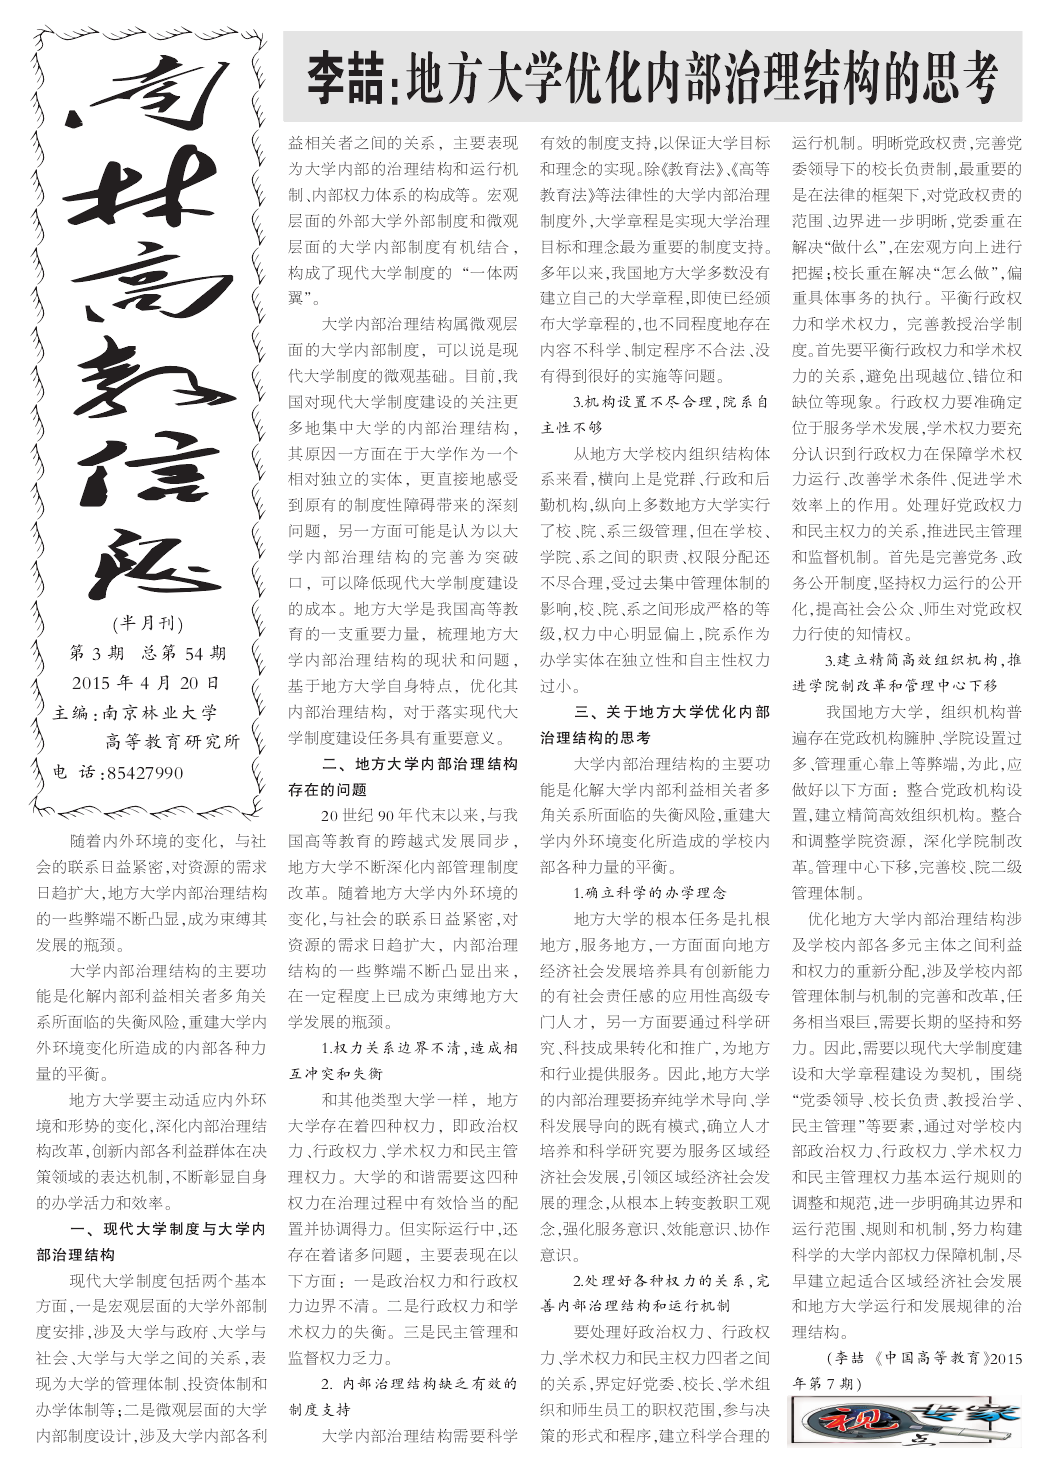 南林高教信息
(半月刊)
第 3 期 总第 54 期
2015 年 4 月 20 日
主编:南京林业大学
高等教育研究所
电 话:85427990
李喆:地方大学优化内部治理结构的思考
随着内外环境的变化，与社
会的联系日益紧密,对资源的需求
日趋扩大,地方大学内部治理结构
的一些弊端不断凸显,成为束缚其
发展的瓶颈。
大学内部治理结构的主要功
能是化解内部利益相关者多角关
系所面临的失衡风险,重建大学内
外环境变化所造成的内部各种力
量的平衡。
地方大学要主动适应内外环
境和形势的变化,深化内部治理结
构改革,创新内部各利益群体在决
策领域的表达机制,不断彰显自身
的办学活力和效率。
一、现代大学制度与大学内
部治理结构
现代大学制度包括两个基本
方面,一是宏观层面的大学外部制
度安排,涉及大学与政府、大学与
社会、大学与大学之间的关系,表
现为大学的管理体制、投资体制和
办学体制等;二是微观层面的大学
内部制度设计,涉及大学内部各利
益相关者之间的关系，主要表现
为大学内部的治理结构和运行机
制、内部权力体系的构成等。宏观
层面的外部大学外部制度和微观
层面的大学内部制度有机结合，
构成了现代大学制度的“一体两
翼”。
大学内部治理结构属微观层
面的大学内部制度，可以说是现
代大学制度的微观基础。目前,我
国对现代大学制度建设的关注更
多地集中大学的内部治理结构，
其原因一方面在于大学作为一个
相对独立的实体，更直接地感受
到原有的制度性障碍带来的深刻
问题，另一方面可能是认为以大
学内部治理结构的完善为突破
口，可以降低现代大学制度建设
的成本。地方大学是我国高等教
育的一支重要力量，梳理地方大
学内部治理结构的现状和问题，
基于地方大学自身特点，优化其
内部治理结构，对于落实现代大
学制度建设任务具有重要意义。
二、地方大学内部治理结构
存在的问题
20 世纪 90 年代末以来,与我
国高等教育的跨越式发展同步，
地方大学不断深化内部管理制度
改革。随着地方大学内外环境的
变化,与社会的联系日益紧密,对
资源的需求日趋扩大，内部治理
结构的一些弊端不断凸显出来，
在一定程度上已成为束缚地方大
学发展的瓶颈。
1.权力关系边界不清,造成相
互冲突和失衡
和其他类型大学一样，地方
大学存在着四种权力，即政治权
力、行政权力、学术权力和民主管
理权力。大学的和谐需要这四种
权力在治理过程中有效恰当的配
置并协调得力。但实际运行中,还
存在着诸多问题，主要表现在以
下方面：一是政治权力和行政权
力边界不清。二是行政权力和学
术权力的失衡。三是民主管理和
监督权力乏力。
2. 内部治理结构缺乏有效的
制度支持
大学内部治理结构需要科学
有效的制度支持,以保证大学目标
和理念的实现。除《教育法》、《高等
教育法》等法律性的大学内部治理
制度外,大学章程是实现大学治理
目标和理念最为重要的制度支持。
多年以来,我国地方大学多数没有
建立自己的大学章程,即使已经颁
布大学章程的,也不同程度地存在
内容不科学、制定程序不合法、没
有得到很好的实施等问题。
3.机构设置不尽合理,院系自
主性不够
从地方大学校内组织结构体
系来看,横向上是党群、行政和后
勤机构,纵向上多数地方大学实行
了校、院、系三级管理,但在学校、
学院、系之间的职责、权限分配还
不尽合理,受过去集中管理体制的
影响,校、院、系之间形成严格的等
级,权力中心明显偏上,院系作为
办学实体在独立性和自主性权力
过小。
三、关于地方大学优化内部
治理结构的思考
大学内部治理结构的主要功
能是化解大学内部利益相关者多
角关系所面临的失衡风险,重建大
学内外环境变化所造成的学校内
部各种力量的平衡。
1.确立科学的办学理念
地方大学的根本任务是扎根
地方,服务地方,一方面面向地方
经济社会发展培养具有创新能力
的有社会责任感的应用性高级专
门人才，另一方面要通过科学研
究、科技成果转化和推广,为地方
和行业提供服务。因此,地方大学
的内部治理要扬弃纯学术导向、学
科发展导向的既有模式,确立人才
培养和科学研究要为服务区域经
济社会发展,引领区域经济社会发
展的理念,从根本上转变教职工观
念,强化服务意识、效能意识、协作
意识。
2.处理好各种权力的关系,完
善内部治理结构和运行机制
要处理好政治权力、行政权
力、学术权力和民主权力四者之间
的关系,界定好党委、校长、学术组
织和师生员工的职权范围,参与决
策的形式和程序,建立科学合理的
运行机制。明晰党政权责,完善党
委领导下的校长负责制,最重要的
是在法律的框架下,对党政权责的
范围、边界进一步明晰,党委重在
解决“做什么”,在宏观方向上进行
把握;校长重在解决“怎么做”,偏
重具体事务的执行。平衡行政权
力和学术权力，完善教授治学制
度。首先要平衡行政权力和学术权
力的关系,避免出现越位、错位和
缺位等现象。行政权力要准确定
位于服务学术发展,学术权力要充
分认识到行政权力在保障学术权
力运行、改善学术条件、促进学术
效率上的作用。处理好党政权力
和民主权力的关系,推进民主管理
和监督机制。首先是完善党务、政
务公开制度,坚持权力运行的公开
化,提高社会公众、师生对党政权
力行使的知情权。
3.建立精简高效组织机构,推
进学院制改革和管理中心下移
我国地方大学，组织机构普
遍存在党政机构臃肿、学院设置过
多、管理重心靠上等弊端,为此,应
做好以下方面：整合党政机构设
置,建立精简高效组织机构。整合
和调整学院资源，深化学院制改
革。管理中心下移,完善校、院二级
管理体制。
优化地方大学内部治理结构涉
及学校内部各多元主体之间利益
和权力的重新分配,涉及学校内部
管理体制与机制的完善和改革,任
务相当艰巨,需要长期的坚持和努
力。因此,需要以现代大学制度建
设和大学章程建设为契机，围绕
“党委领导、校长负责、教授治学、
民主管理”等要素,通过对学校内
部政治权力、行政权力、学术权力
和民主管理权力基本运行规则的
调整和规范,进一步明确其边界和
运行范围、规则和机制,努力构建
科学的大学内部权力保障机制,尽
早建立起适合区域经济社会发展
和地方大学运行和发展规律的治
理结构。
(李喆 《中国高等教育》2015
年第 7 期)
专家
视点